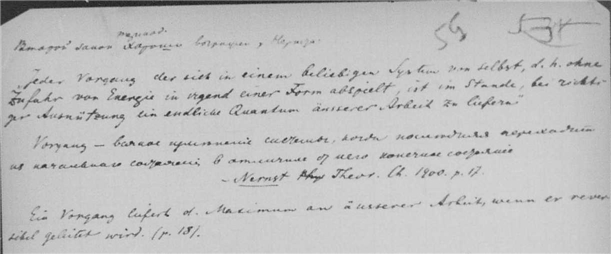 56 534
Второй закон Карно выражен у Нернста:
"Jeder Vorgang der sich in einem beliebigen System von selbst, d. h. ohne
Zufuhr von Energie in irgend einer Form abspielt, ist im Stande, bei richti-
ger Ausnützung ein endliche Quantum äusserer Arbeit zu liefern"
Vorgang – изменение системы, когда последняя переходит
из начального состояния в отличное от него конечное состояние
– Nernst Phys Theor. Ch. 1900. p. 17.
Ein Vorgang liefert d. Maximum an äusserer Arbeit, wenn er rever-
sibel geleitet wird. (p. 18).